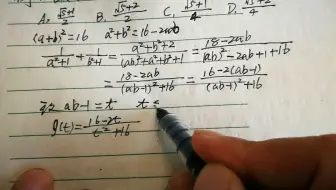 A. (√5+1)/2 B. (√5+2)/2 C. (√5+1)/4 D. (√5+2)/4
(a+b)²=16 a²+b²=16-2ab
1/(a²+1) + 1/(b²+1) = (a²+b²+2)/((ab)²+a²+b²+1) = (18-2ab)/((ab)²-2ab+1+16)
= (18-2ab)/((ab-1)²+16) = (16-2(ab-1))/((ab-1)²+16)
ab-1=t t≤
g(t)=(16-2t)/(t²+16)